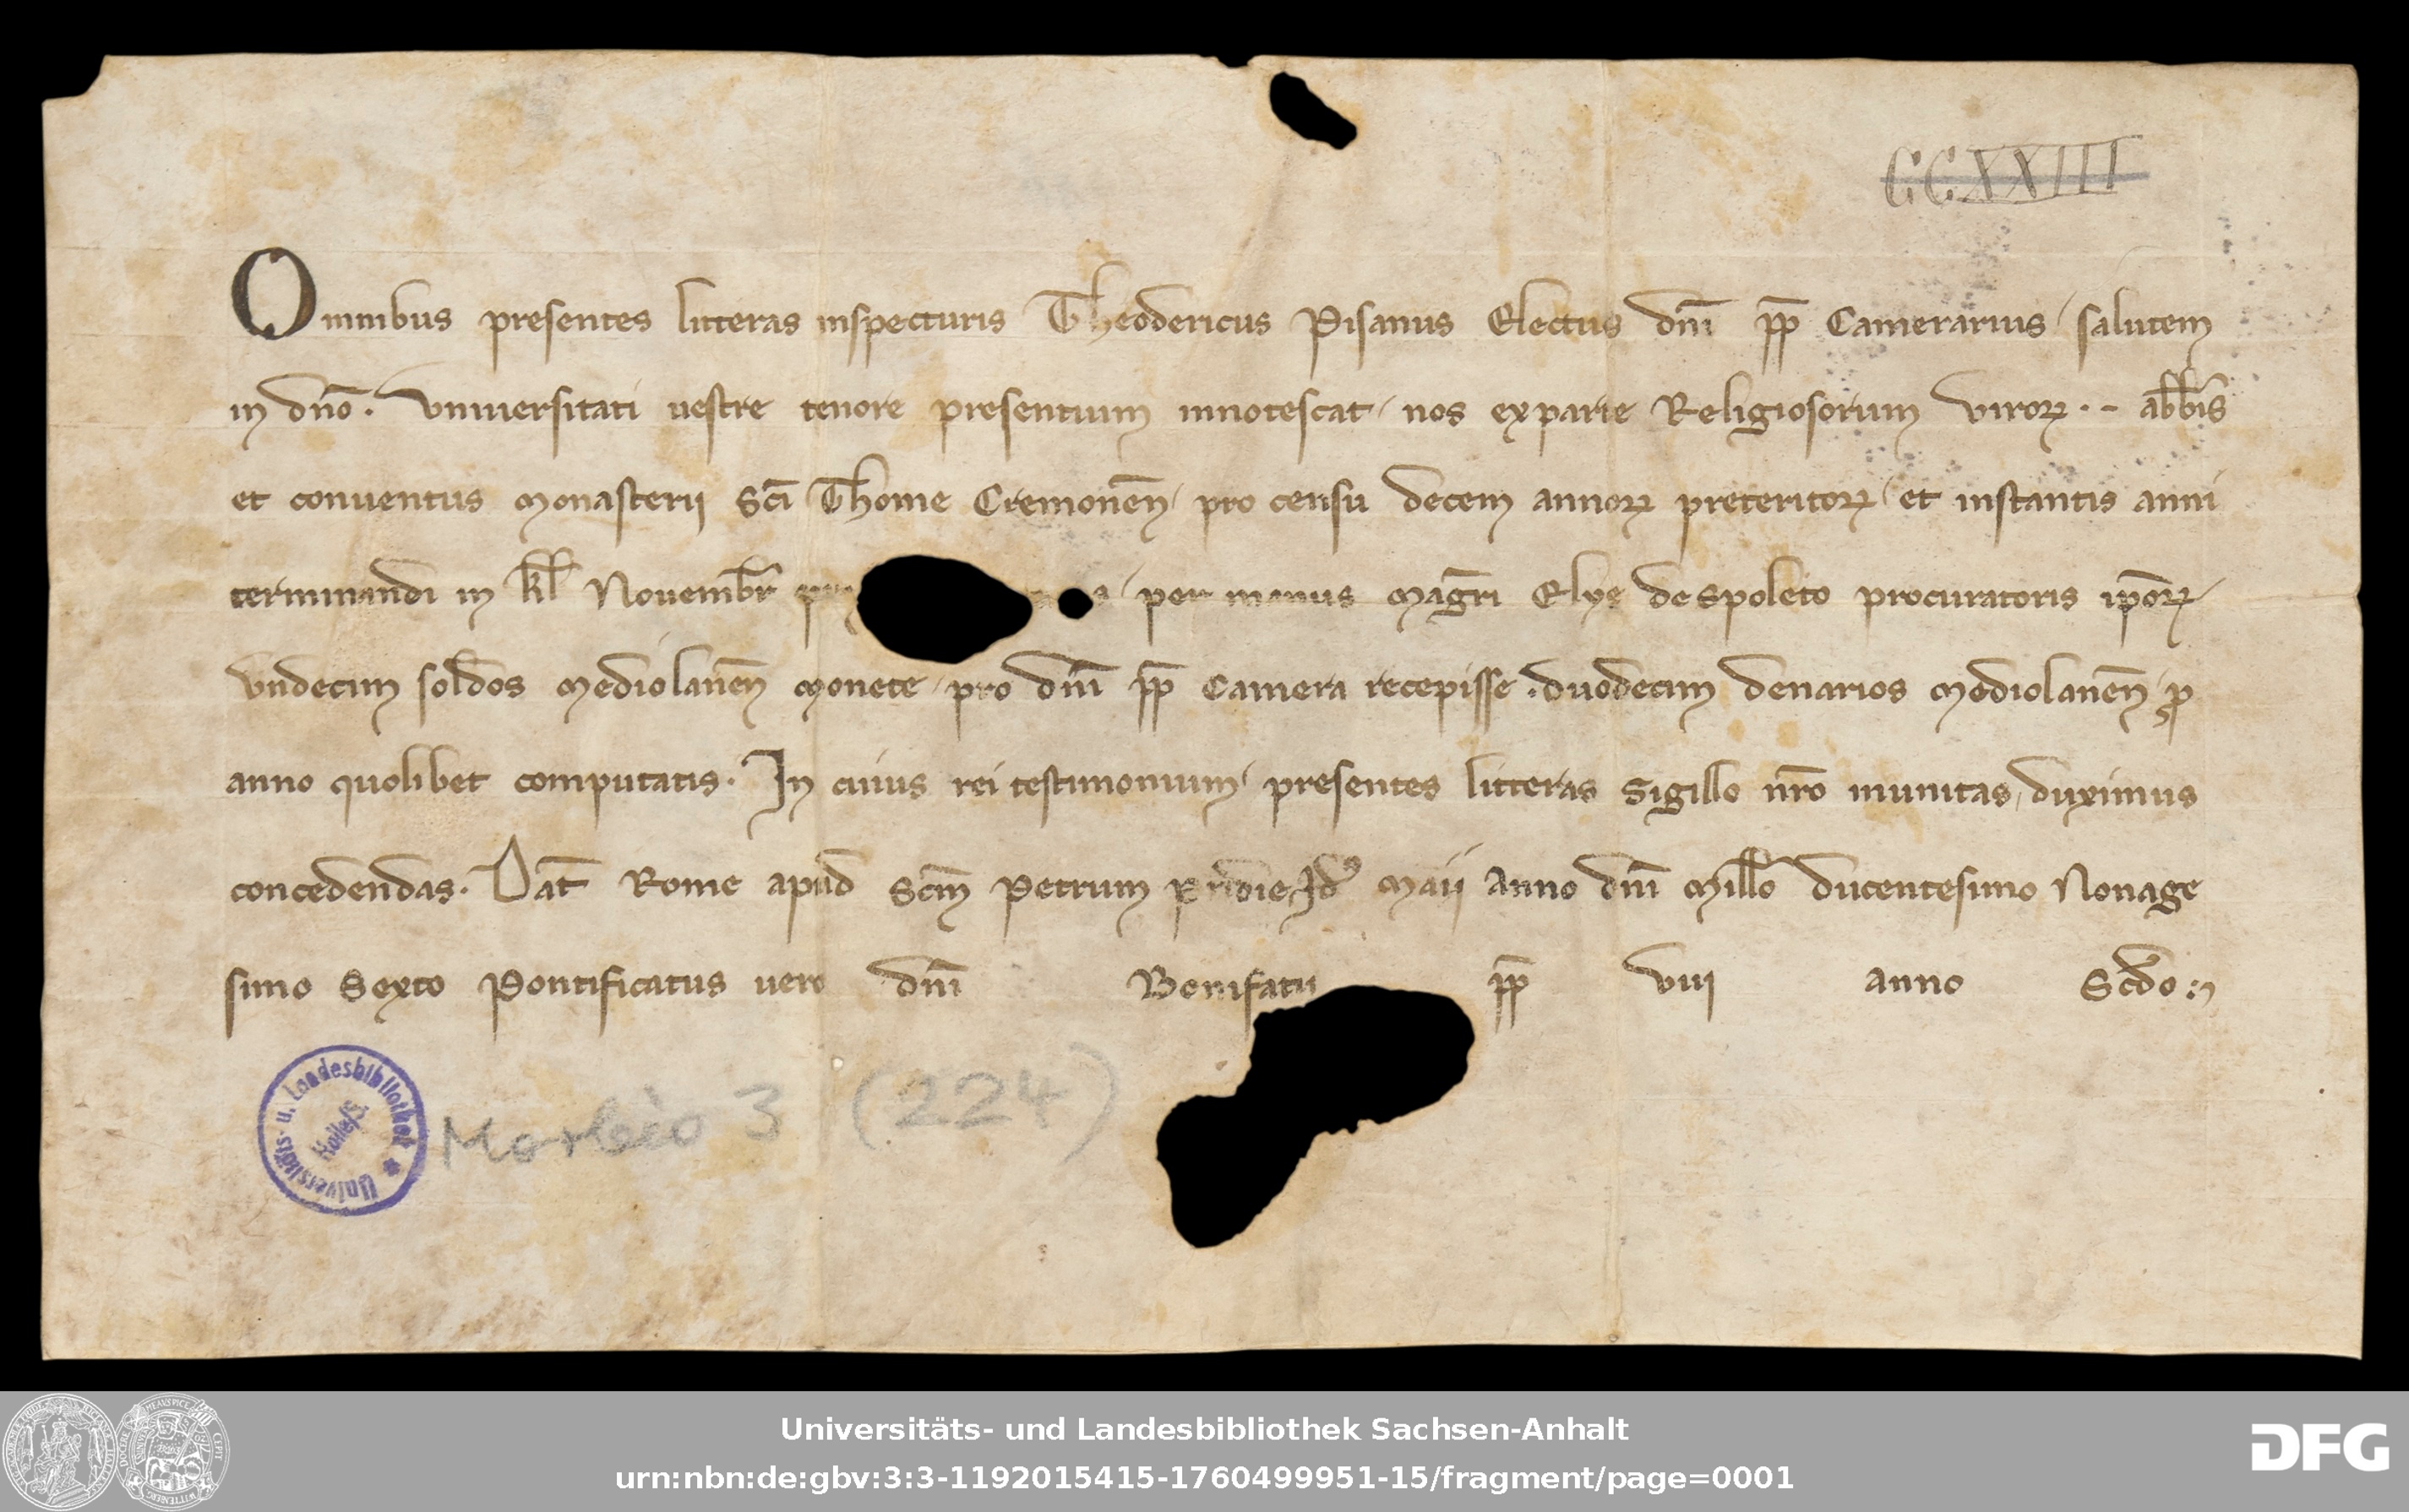 CCXXIII
Omnibus presentes litteras inspecturis Theodericus Pisanus Electus dn̄i pp̄ Camerarius / salutem
in dn̄o . Vniuersitati uestre tenore presentium innotescat / nos ex parte Religiosorum viroꝝ . - abb̄is
et conuentus Monasterij Sc̄i Thome Cremonen̄ / pro censu decem annoꝝ preteritoꝝ / et instantis anni
terminandi in kl̄ Nouembr̄ / per manus Maḡri Elye de Spoleto procuratoris ip̄oꝝ /
vndecim soldos Mediolanen̄ Monete / pro dn̄i pp̄ Camera recepisse . duodecim denarios Mediolanen̄ / ꝓ
anno quolibet computatis . In cuius rei testimonium / presentes litteras Sigillo nr̄o munitas / duximus
concedendas . Dat̄ Rome apud Sc̄m Petrum pridie Id⁹ Maij Anno dn̄i Mill̄o ducentesimo Nonage
simo Sexto Pontificatus uero dn̄i Bonifatii pp̄ viij anno Scd̄o :~
Universitäts- u. Landesbibliothek * Halle/S.
Morbio 3 (224)
Universitäts- und Landesbibliothek Sachsen-Anhalt
urn:nbn:de:gbv:3:3-1192015415-1760499951-15/fragment/page=0001
DFG